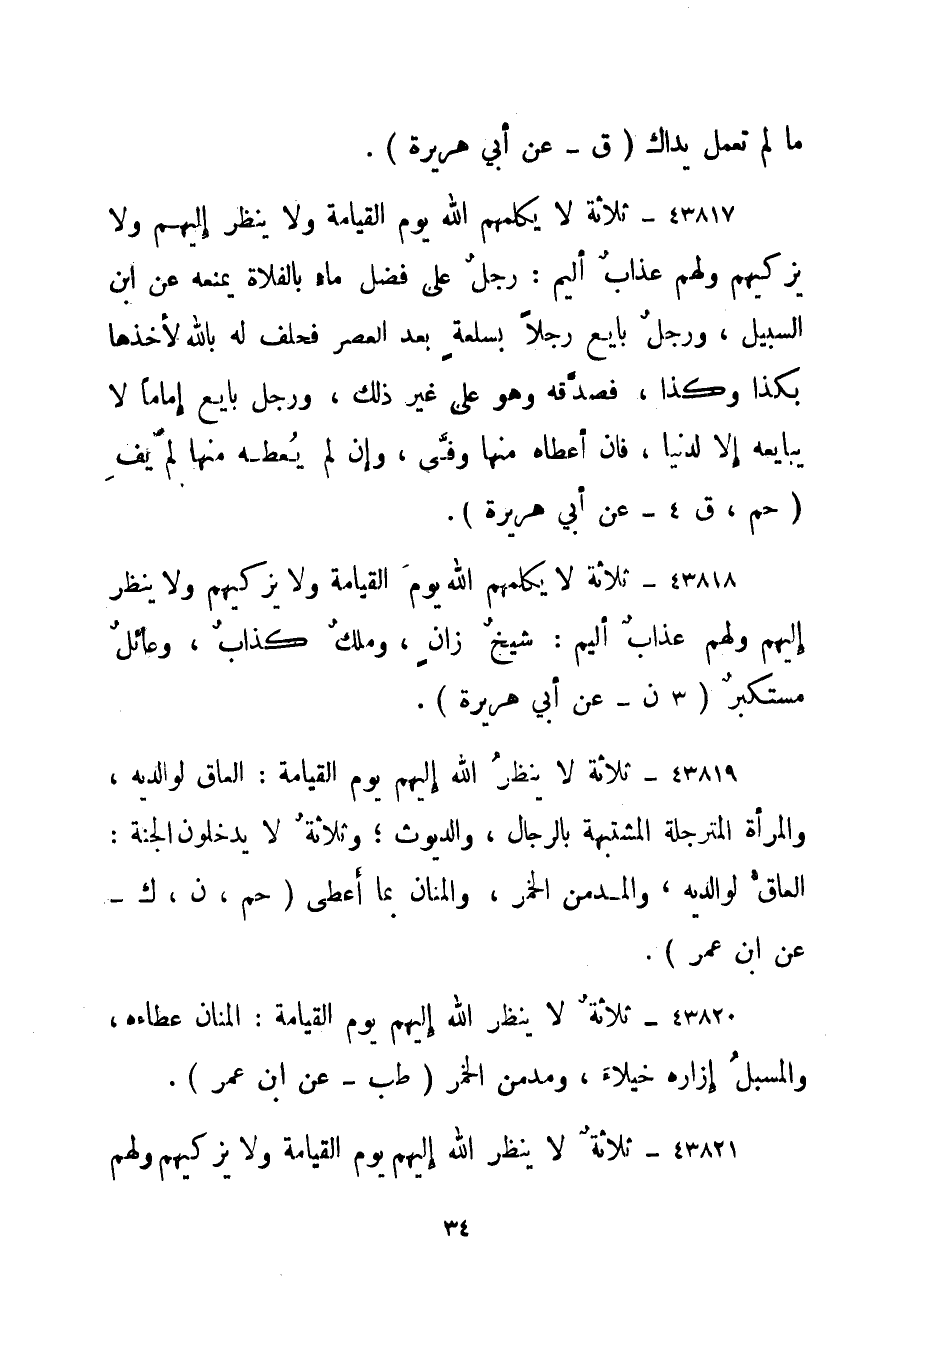 ما لم تعمل يداك ( ق ــ عن أبي هريرة ) .
٤٣٨١٧ ــ ثلاثة لا يكلمهم الله يوم القيامة ولا ينظر إليهم ولا
يزكيهم ولهم عذابٌ أليم : رجلٌ على فضل ماء بالفلاة يمنعه عن ابن
السبيل ، ورجلٌ بايع رجلاً بسلعةٍ بعد العصر فحلف له بالله لأخذها
بكذا وكذا ، فصدَّقه وهو على غير ذلك ، ورجل بايع إماماً لا
يبايعه إلا لدنيا ، فان أعطاه منها وفَّى ، وإن لم يُعطه منها لم يَفِ
( حم ، ق ٤ ــ عن أبي هريرة ) .
٤٣٨١٨ ــ ثلاثة لا يكلمهم الله يومَ القيامة ولا يزكيهم ولا ينظر
إليهم ولهم عذابٌ أليم : شيخٌ زانٍ ، وملكٌ كذابٌ ، وعائلٌ
مستكبرٌ ( ٣ ن ــ عن أبي هريرة ) .
٤٣٨١٩ ــ ثلاثة لا ينظرُ الله إليهم يوم القيامة : العاق لوالديه ،
والمرأة المترجلة المشتبهة بالرجال ، والديوث ؛ وثلاثةٌ لا يدخلون الجنة :
العاقُ لوالديه ، والمدمن الخمر ، والمنان بما أعطى ( حم ، ن ، ك ــ
عن ابن عمر ) .
٤٣٨٢٠ ــ ثلاثةٌ لا ينظر الله إليهم يوم القيامة : المنان عطاءه ،
والمسبلُ إزاره خيلاءَ ، ومدمن الخمر ( طب ــ عن ابن عمر ) .
٤٣٨٢١ ــ ثلاثةٌ لا ينظر الله إليهم يوم القيامة ولا يزكيهم ولهم
٣٤